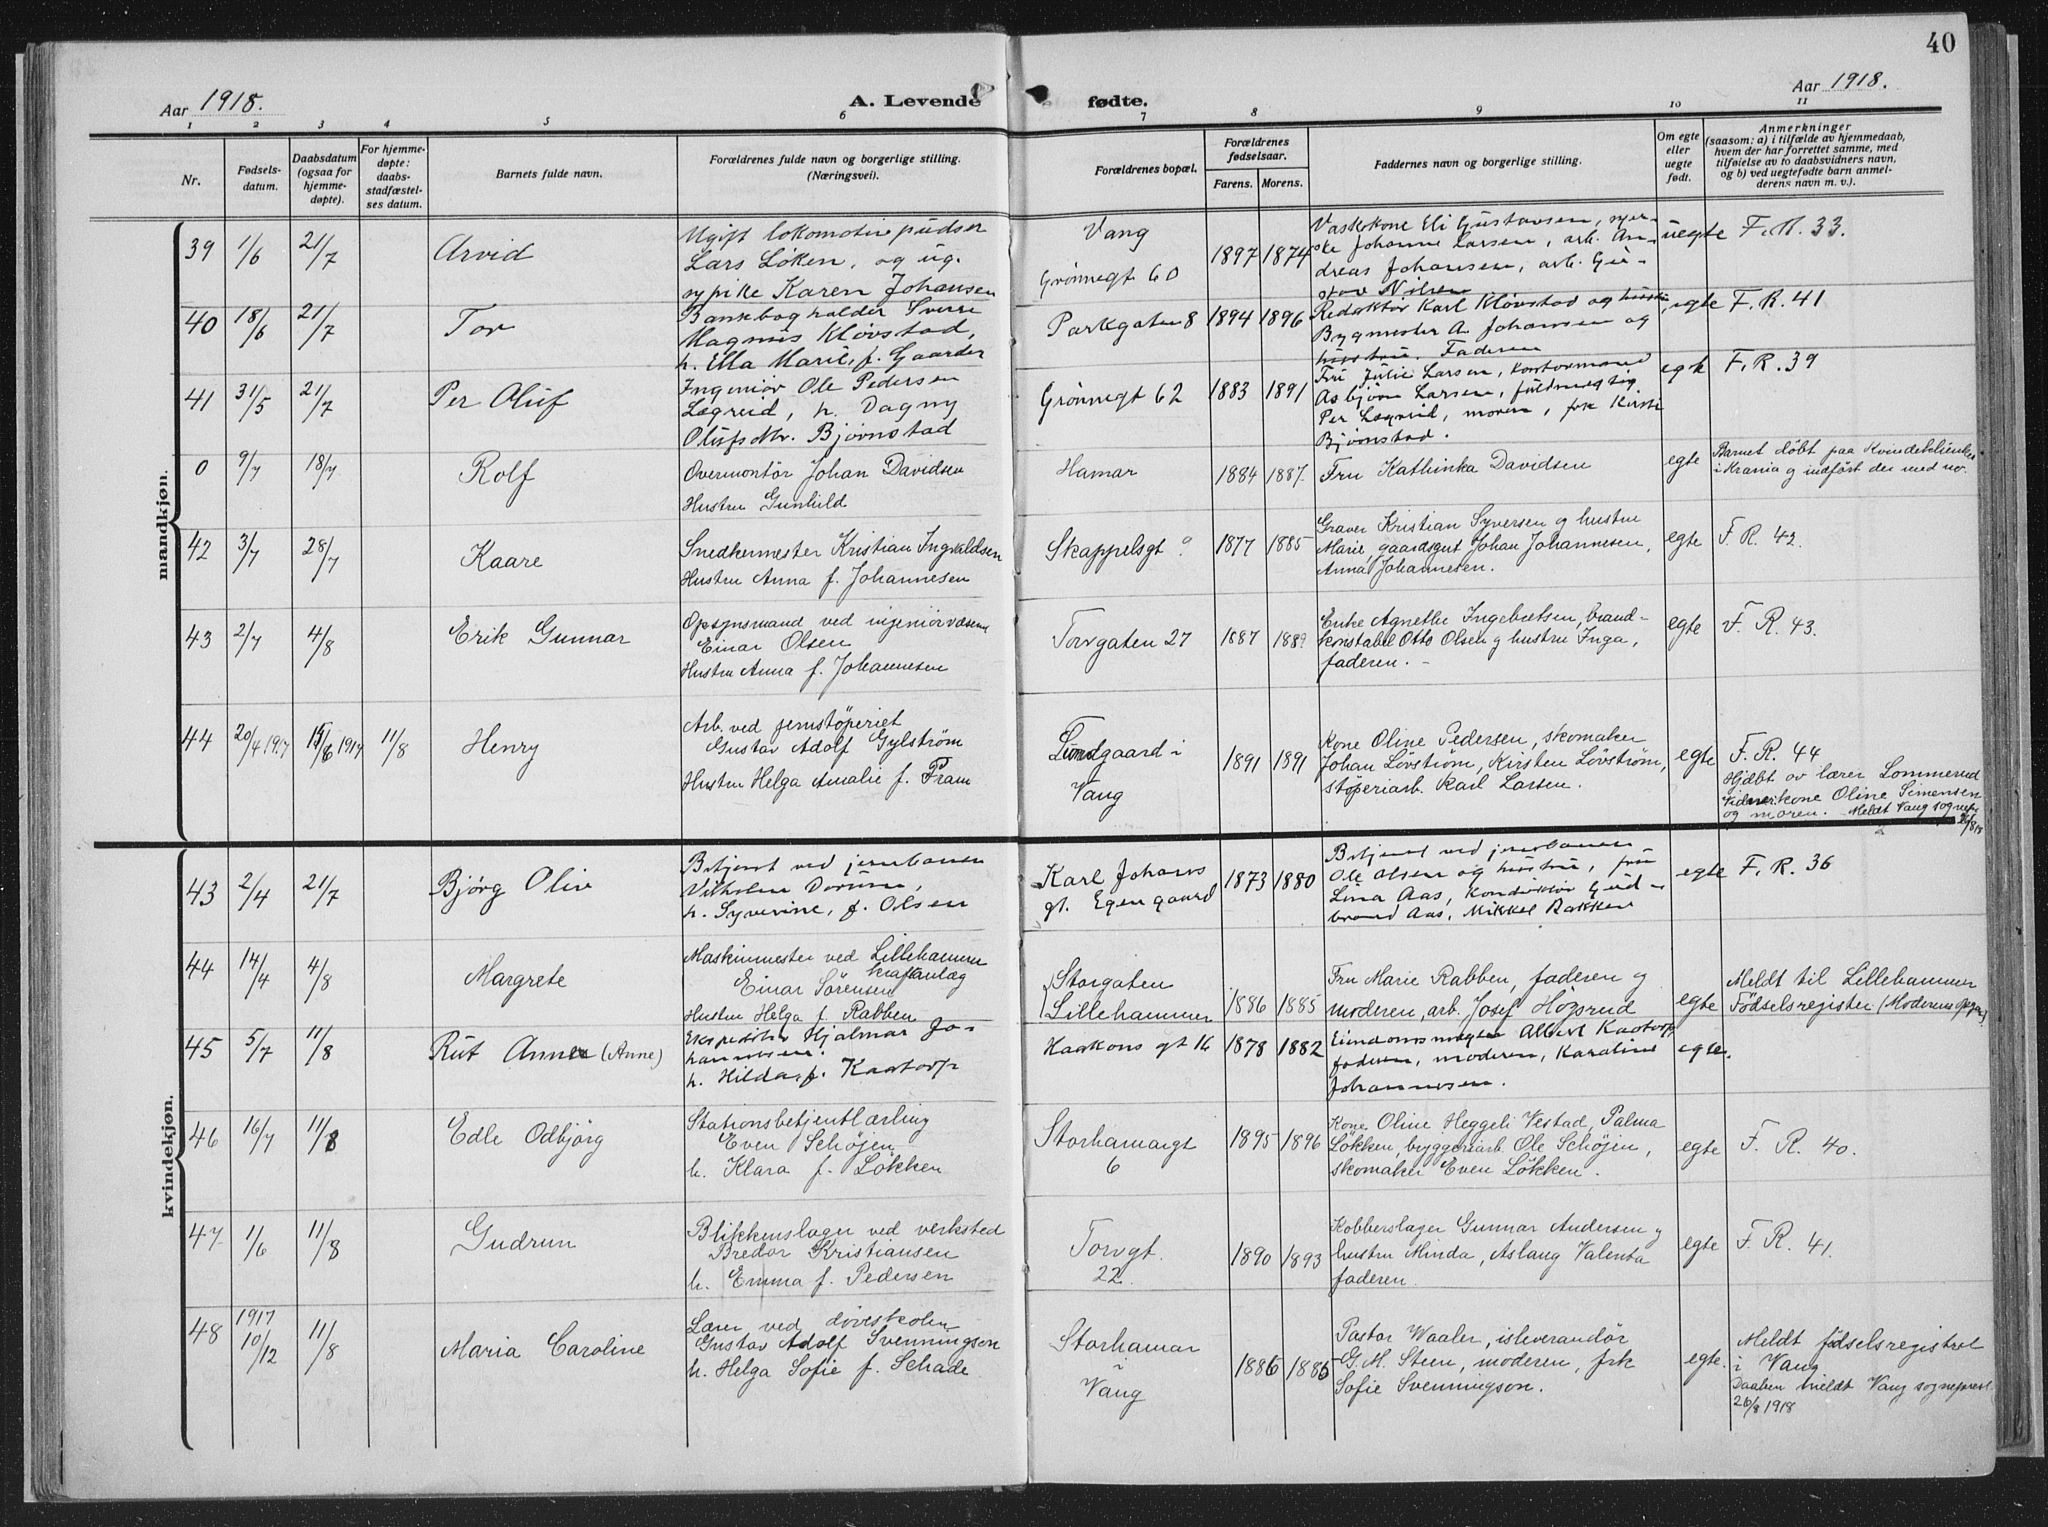 40
Aar 1918.
A. Levende fødte.
Aar 1918.
1 2 3 4 5 6 7 8 9 10 11
Nr.
Fødsels-
datum.
Daabsdatum
(ogsaa for
hjemme-
døpte).
For hjemme-
døpte:
daabs-
stadfæstel-
ses datum.
Barnets fulde navn.
Forældrenes fulde navn og borgerlige stilling.
(Næringsvei).
Forældrenes bopæl.
Forældrenes
fødselsaar.
Farens. Morens.
Faddernes navn og borgerlige stilling.
Om egte
eller
uegte
født.
Anmerkninger
(saasom: a) i tilfælde av hjemmedaab,
hvem der har forrettet samme, med
tilføielse av to daabsvidners navn,
og b) ved uegtefødte barn anmel-
derens navn m. v.).
mandkjøn.
39 1/6 21/7 Arvid
Ugift lokomotivpudser
Lars Løken, og ug.
sypike Karen Johansen
Vang
Grønnegt 60
1897 1874
Vaskekone Eli Gustavsen, syer-
ske Johanne Larsen, arb. An-
dreas Johansen, arb. Gu-
stav Nilsen
uegte F. R. 33.
40 18/6 21/7 Tor
Bankbogholder Sverre
Magnus Kløvstad,
h. Ella Marie, f. Gaarder
Parkgaten 8 1894 1896
Redaktør Karl Kløvstad og hustru,
Bygmester A. Johansen og
hustru. Faderen
egte F. R. 41
41 31/5 21/7 Per Oluf
Ingeniør Ole Pedersen
Lægreid, h. Dagny
Olufsdtr. Bjørnstad
Grønnegt 62 1883 1891
Fru Julie Larsen, kontormand
Asbjørn Larsen, fuldmegtig
Per Lægreid, moren, frk Kirsti
Bjørnstad.
egte F. R. 39
0 9/7 18/7 Rolf
Overmontør Johan Davidsen
Hustru Gunhild
Hamar 1884 1887.
Fru Kathinka Davidsen
egte
Barnet døbt paa Kvindeklinken
i Krania og indført der med no.
42 3/7 28/7 Kaare
Snedkermester Kristian Ingvaldsen
Hustru Anna f. Johannesen
Skappelsgt 9 1877 1885
Graver Kristian Syversen og hustru
Marie, gaardsgut Johan Johannesen,
Anna Johannesen.
egte F. R. 42.
43 2/7 4/8 Erik Gunnar
Opsynsmand ved ingeniørvæsenet
Einar Olsen
Hustru Anna f. Johannesen
Torvgaten 27 1887 1889
Enke Agnethe Ingebretsen, brand-
konstabel Otto Olsen og hustru Inga,
faderen.
egte F. R. 43.
44 20/4 1917 15/6 1917 11/8 Henry
Arb. ved jernstöperiet
Gustav Adolf Gylström
Hustru Helga Amalie f. Fram
Lundgaard i
Vang
1891 1891
Kone Oline Pedersen, skomaker
Johan Lövström, Kirsten Lövström,
stöperiarb. Karl Larsen.
egte F. R. 44
Hjdøbt av lærer Lommerud
Vidner: kone Oline Simensen
og moren. Meldt Vang sognepr.
kvindekjøn.
43 2/4 21/7 Bjørg Oliv
Betjent ved jernbanen
Vilhelm Dørum,
h. Syverine, f. Olsen
Karl Johans
gt. Egen gaard
1873 1880
Betjent ved jernbanen
Ole Olsen og hustru, fru
Lina Aas, konduktør Gud-
brand Aas, Mikkel Bakken
egte F. R. 36
44 14/4 4/8 Margrete
Maskinmester ved Lillehammer
kraftanlæg
Einar Sörensen
Hustru Helga f. Rabben
Storgaten
Lillehammer
1886 1885
Fru Marie Rabben, faderen og
moderen, arb. Josef Högsrud
egte
Meldt til Lillehammer
Födselsregister (Moderens opgave)
45 5/7 11/8 Rut Anna (Anne)
Ekspeditør Hjalmar Jo-
hannesen.
h. Hilda, f. Kastorp
Haakons gt 16 1878 1882
Eiendomsmægler Albert Kastorp
faderen, moderen, Karoline
Johannesen.
egte.
46 16/7 11/8 Edle Odbjörg
Stationsbetjentlærling
Even Schöjen
h. Klara f. Løkken
Storhamargt
6
1895 1896
Kone Oline Heggeli Vestad, Palma
Løkken, byggeriarb. Ole Schöjen,
skomaker Even Løkken.
egte F. R. 40.
47 1/6 11/8 Gudrun
Blikkenslager ved verksted
Bredor Kristiansen
h. Emma f. Pedersen
Torvgt.
22.
1890 1893
Kobberslager Gunnar Andersen og
hustru Minda, Aslaug Valenta
faderen.
egte F. R. 41.
48 1917 10/12 11/8 Maria Caroline
Lærer ved døveskolen
Gustav Adolf Svenningson
h. Helga Sofie f. Schade
Storhamar
i
Vang
1886 1886
Pastor Waaler, isleverandör
G. M. Steen, moderen, frk
Sofie Svenningson.
egte.
Meldt födselsregistret
i Vang
Daaben meldt Vang sogneprest
26/8 1918